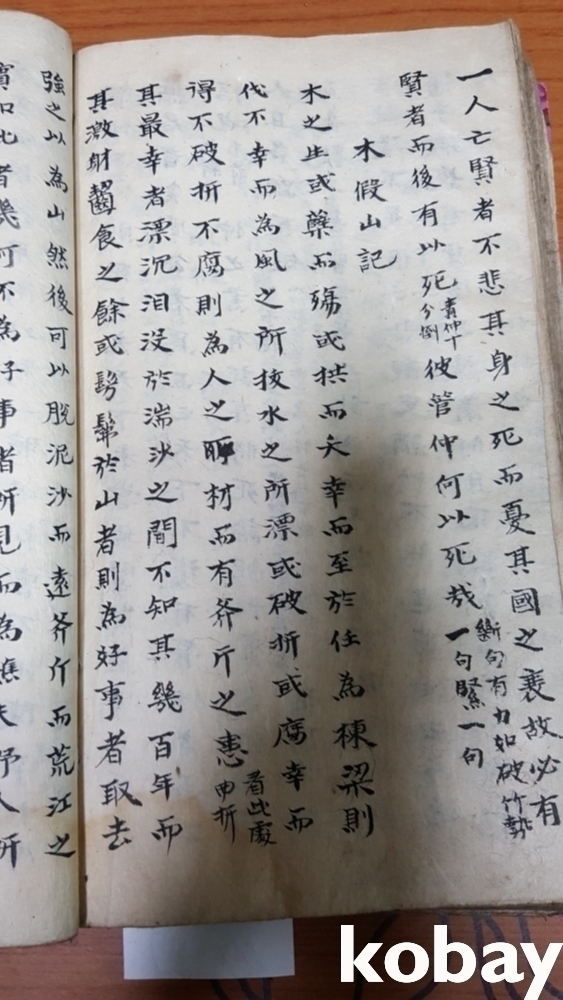 一人亡賢者不悲其身之死而憂其國之衰故必有
賢者而後有以死
責仲下
分倒
彼管仲何以死哉
斷句有力如破竹勢
一句緊一句
木假山記
木之生或蘖而殤或拱而夭幸而至於任為棟梁則
伐不幸而為風之所拔水之所漂或破折或腐幸而
得不破折不腐則為人之所材而有斧斤之患
看此處
曲折
其最幸者漂沉汨没於湍沙之間不知其幾百年而
其激射齧食之餘或髣髴於山者則為好事者取去
強之以為山然後可以脫泥沙而遠斧斤而荒江之
濆如此者幾何不為好事者所見而為樵夫野人所
kobay